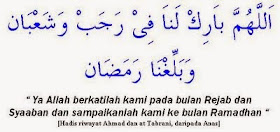 اَللَّهُمَّ بَارِكْ لَنَا فِيْ رَجَبْ وَشَعْبَان
وَبَلِّغْنَا رَمَضَان
“ Ya Allah berkatilah kami pada bulan Rejab dan
Syaaban dan sampaikanlah kami ke bulan Ramadhan ”
[Hadis riwayat Ahmad dan at Tabrani, daripada Anas]